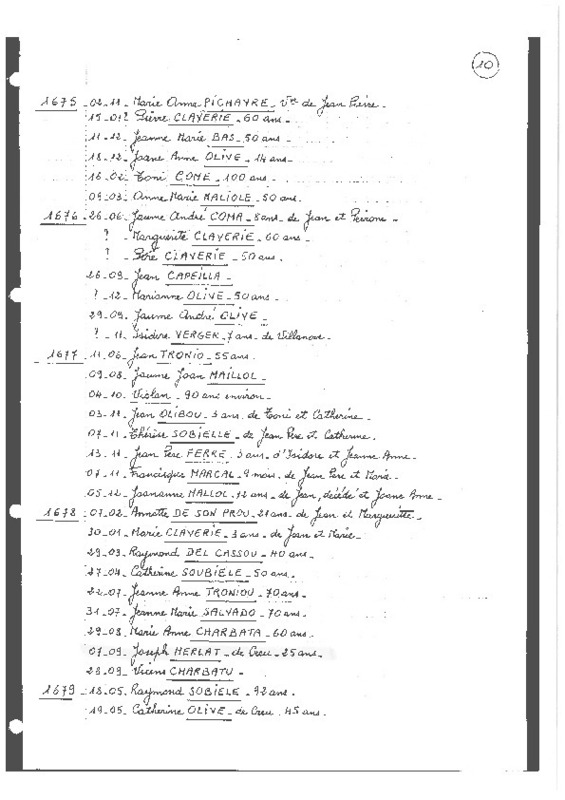 10
1675 - 02-11 - Marie Anne PICHAYRE - Vve de Jean Pierre -
15-01? Pierre CLAVERIE - 60 ans -
11-12 - Jeanne Marie BAS - 50 ans -
18-12 - Joane Anne OLIVE - 14 ans -
16-02 - Toni COME - 100 ans -
09-03 - Anne Marie MALIOLE - 50 ans.
1676 - 26-06 - Jaume André COMA - 8 ans - de Jean et Peirone -
? - Marguerite CLAVERIE - 60 ans -
? - Père CLAVERIE - 50 ans.
26-09 - Jean CAPEILLA -
? - 12 - Marianne OLIVE - 50 ans -
29-09 - Jaume André OLIVE -
? - 11 - Isidore VERGER - 7 ans - de Villanove -
1677 - 11-06 - Jean TRONIO - 55 ans.
09-08 - Jaume Joan MAILLOL -
04-10 - Violan - 90 ans environ -
03-11 - Jean OLIBOU - 3 ans. de Toni et Catherine -
07-11 - Thérèse SOBIELLE - de Jean Pere et Catherine.
13-11 - Jean Pere FERRE - 3 ans - d'Isidore et Jeanne Anne -
07-11 - Francisque MARCAL - 9 mois - de Jean Pere et Marie -
05-12 - Joananne MALLOL - 12 ans - de Jean, décédé et Joane Anne -
1678 - 07-02 - Annette DE SON PROU - 21 ans - de Jean et Marguerite -
30-01 - Marie CLAVERIE - 3 ans - de Jean et Marie -
29-03 - Raymond DEL CASSOU - 40 ans -
27-04 - Catherine SOUBIELE - 50 ans -
22-07 - Jeanne Anne TRONIOU - 70 ans -
31-07 - Jeanne Marie SALVADO - 70 ans -
29-08 - Marie Anne CHARBATA - 60 ans -
07-09 - Joseph MERLAT - de Creu - 25 ans -
28-09 - Vicens CHARBATU -
1679 - 18-05 - Raymond SOBIELE - 92 ans.
19-05 - Catherine OLIVE - de Creu - 45 ans.